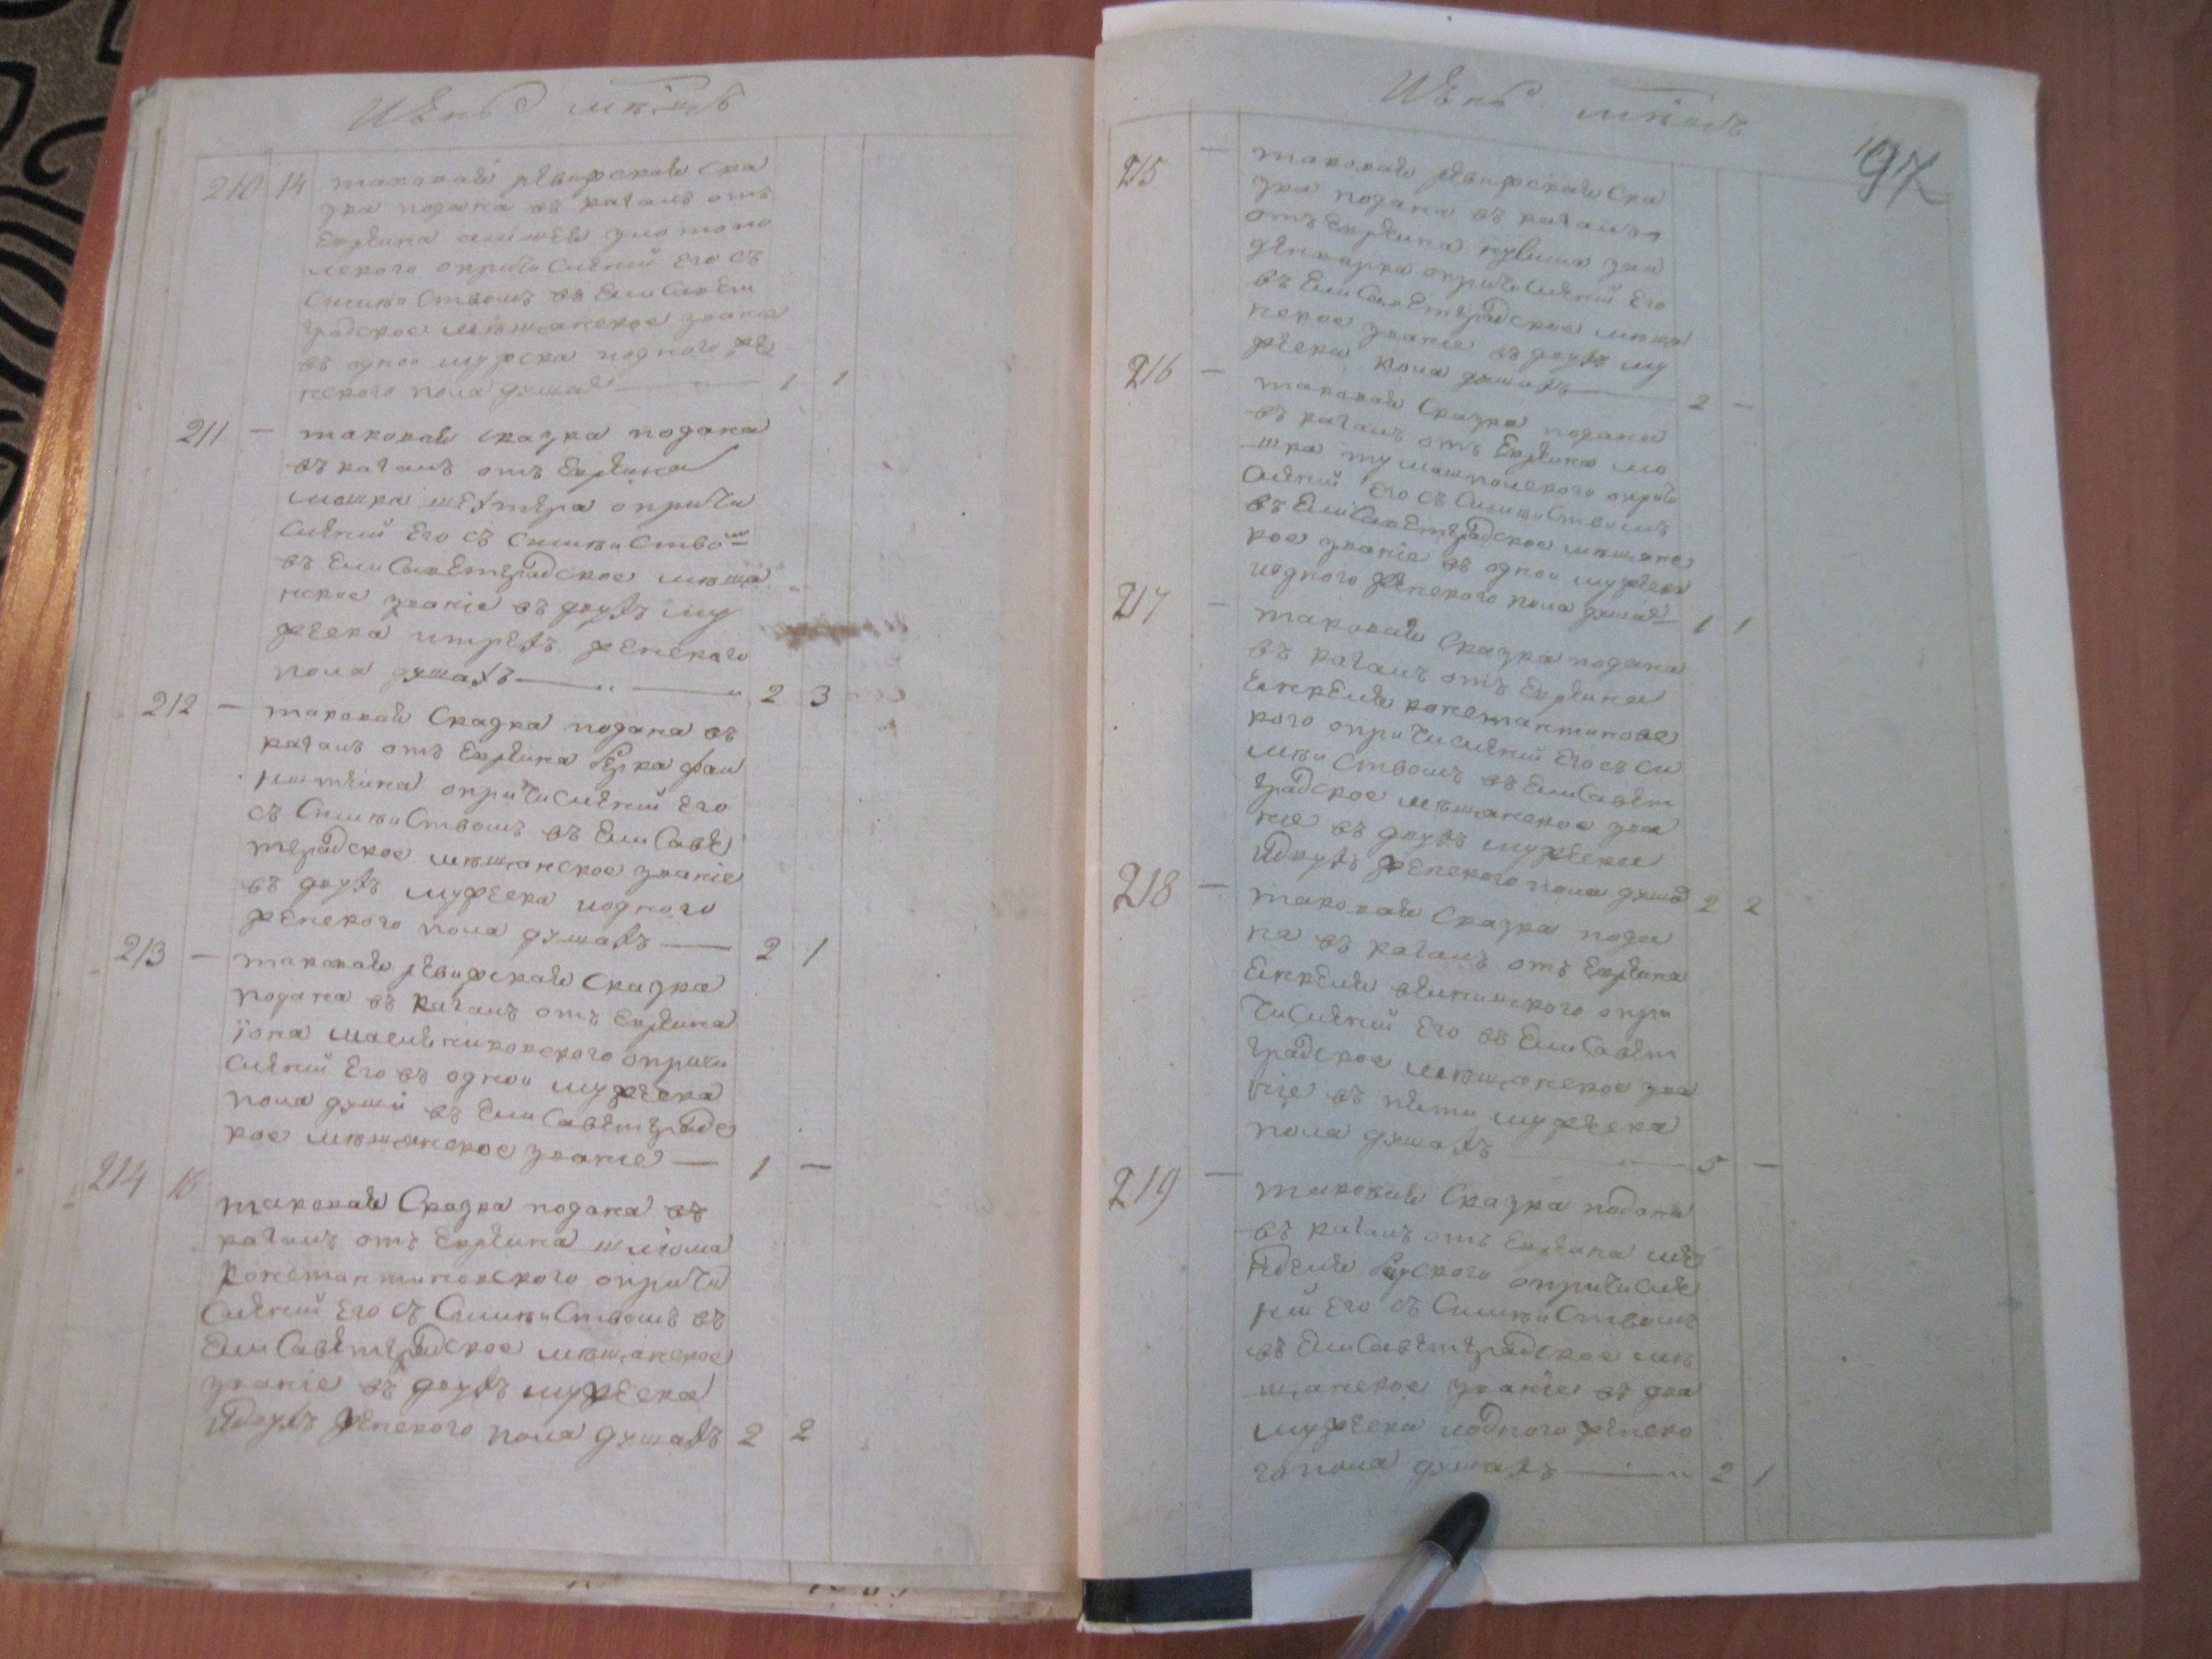 210 14 таковая ревижская ска
зка подана въ кагалъ отъ
Евреина
опричисленій его съ
Симействомъ въ Елисавет
градское мѣщанское звание
въ одной мужска иодного же
нского пола душахъ — 1 1
211 — таковая сказка подана
въ кагалъ отъ Евреина
мошка опричи
сленіи его съ симейство^м
въ Елисаветградское мѣща
нское званіе въ двухъ му
жеска итрехъ женского
пола душахъ — 2 3
212 — таковая Сказка подана въ
кагалъ отъ Евреина Берка фаи
нштеина опричисленіи его
съ Симействомъ въ Елисаве
тградское мѣщанское званіе
въ двухъ мужеска иодного
женского пола душахъ — 2 1
213 — таковая ревижская Сказка
подана въ Кагалъ отъ Евреина
іона маслениковского опричи
сленіи его въ одной мужеска
пола души въ Елисаветградс
кое мѣщанское звание — 1 —
214 15 таковая Сказка подана въ
кагалъ отъ Евреина шліома
Константиновского опричи
Сленіи его съ Симействомъ въ
Елисаветградское мѣщанское
званіе въ двухъ мужеска
идвухъ женского пола душахъ 2 2
97
215 — таковая ревижская Ска
зка подана въ кагалъ
отъ Евреина
опричисленіи его
въ Елисаветградское мѣща
нское званіе въ двухъ му
жеска пола душахъ — 2 —
216 — таковая Сказка подана
въ кагалъ отъ Евреина мо
шка тумашполского опричи
Сленіи его съ Симействомъ
въ Елисаветградское мѣщанс
кое званіе въ одной мужеска
иодного женского пола душахъ — 1 1
217 — таковая Сказка подана
въ кагалъ отъ Евреина
Янкеля константиновс
кого опричисленіи его съ си
мѣйствомъ въ Елисавет
градское мѣщанское зва
ние въ двухъ мужеска
идвухъ женского пола душа^х 2 2
218 — таковая Сказка пода
на въ кагалъ отъ Евреина
Янкеля опри
численіи его въ Елисавет
градское мѣщанское зва
ніе въ пяти мужеска
пола душахъ — 5 —
219 — таковая Сказка подана
въ кагалъ отъ Евреина ме
нделя опричисле
ніи его съ Симействомъ
въ Елисаветградское мѣ
щанское званіе въ два
мужеска иодного женско
го пола душахъ — 2 1